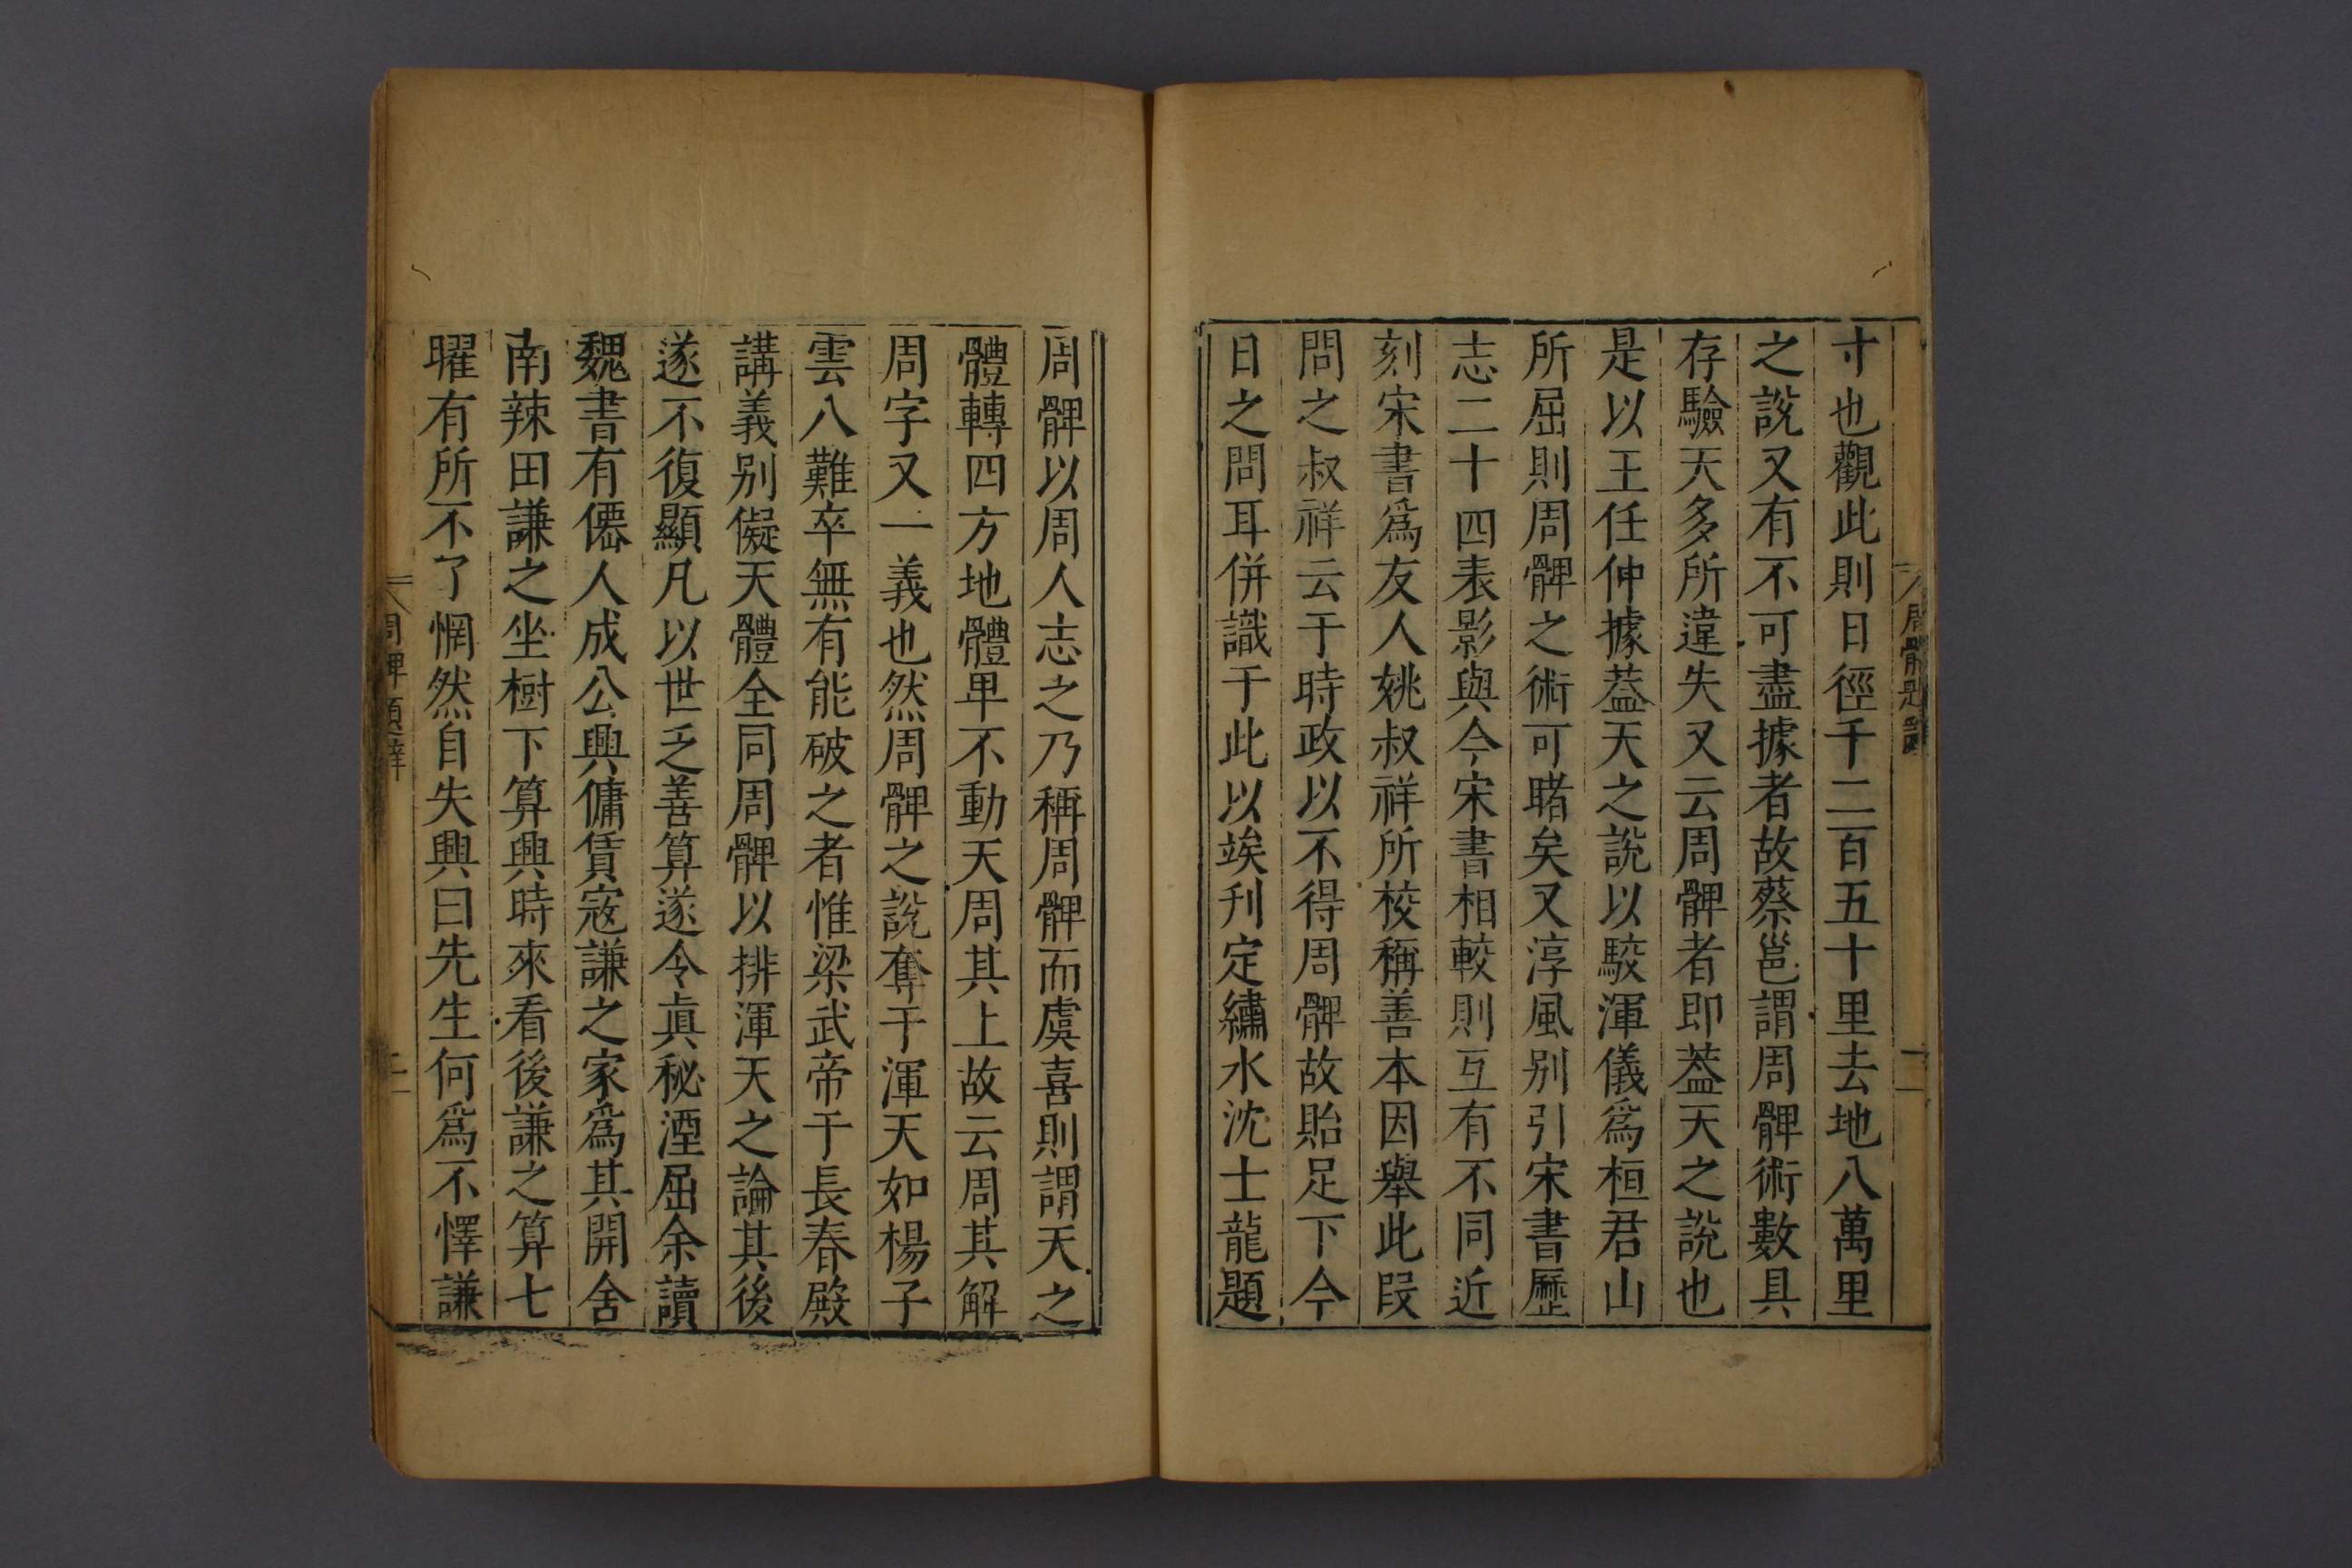 寸也觀此則日徑千二百五十里去地八萬里
之說又有不可盡據者故蔡邕謂周髀術數具
存驗天多所違失又云周髀者即葢天之說也
是以王任仲據葢天之說以駮渾儀爲桓君山
所屈則周髀之術可睹矣又淳風别引宋書歷
志二十四表影與今宋書相較則互有不同近
刻宋書爲友人姚叔祥所校稱善本因舉此段
問之叔祥云于時政以不得周髀故貽足下今
日之問耳併識于此以竢刋定繡水沈士龍題
周髀以周人志之乃稱周髀而虞喜則謂天之
體轉四方地體卑不動天周其上故云周其解
周字又一義也然周髀之說奪于渾天如楊子
雲八難卒無有能破之者惟梁武帝于長春殿
講義别儗天體全同周髀以排渾天之論其後
遂不復顯凡以世乏善算遂令眞秘湮屈余讀
魏書有僊人成公興傭賃宼謙之家爲其開舍
南辣田謙之坐樹下算興時來看後謙之算七
曜有所不了惘然自失興曰先生何爲不懌謙
周髀題辭